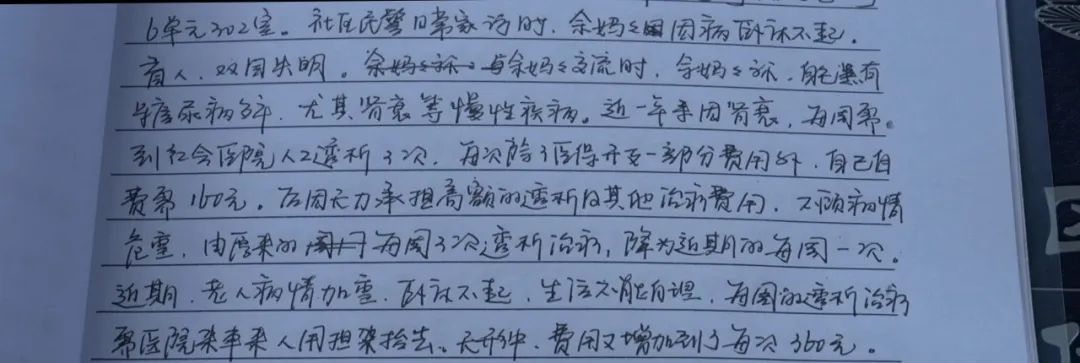 6单元302室。社区民警日常家访时，余妈妈因病卧床不起，
盲人，双目失明。余妈妈诉。与余妈妈交流时，余妈妈诉，自己患有
糖尿病多年，尤其肾衰等慢性疾病。近一年来因肾衰，每周需
到红会医院人工透析3次，每次除了医保开支一部分费用外，自己自
费需160元。后因无力承担高额的透析及其他治疗费用，不顾病情
危重，由原来的每周3次透析治疗，降为近期的每周一次。
近期，老人病情加重，卧床不起，生活不能自理，每周的透析治疗
需医院来车来人用担架抬去。无形中，费用又增加到了每次360元。